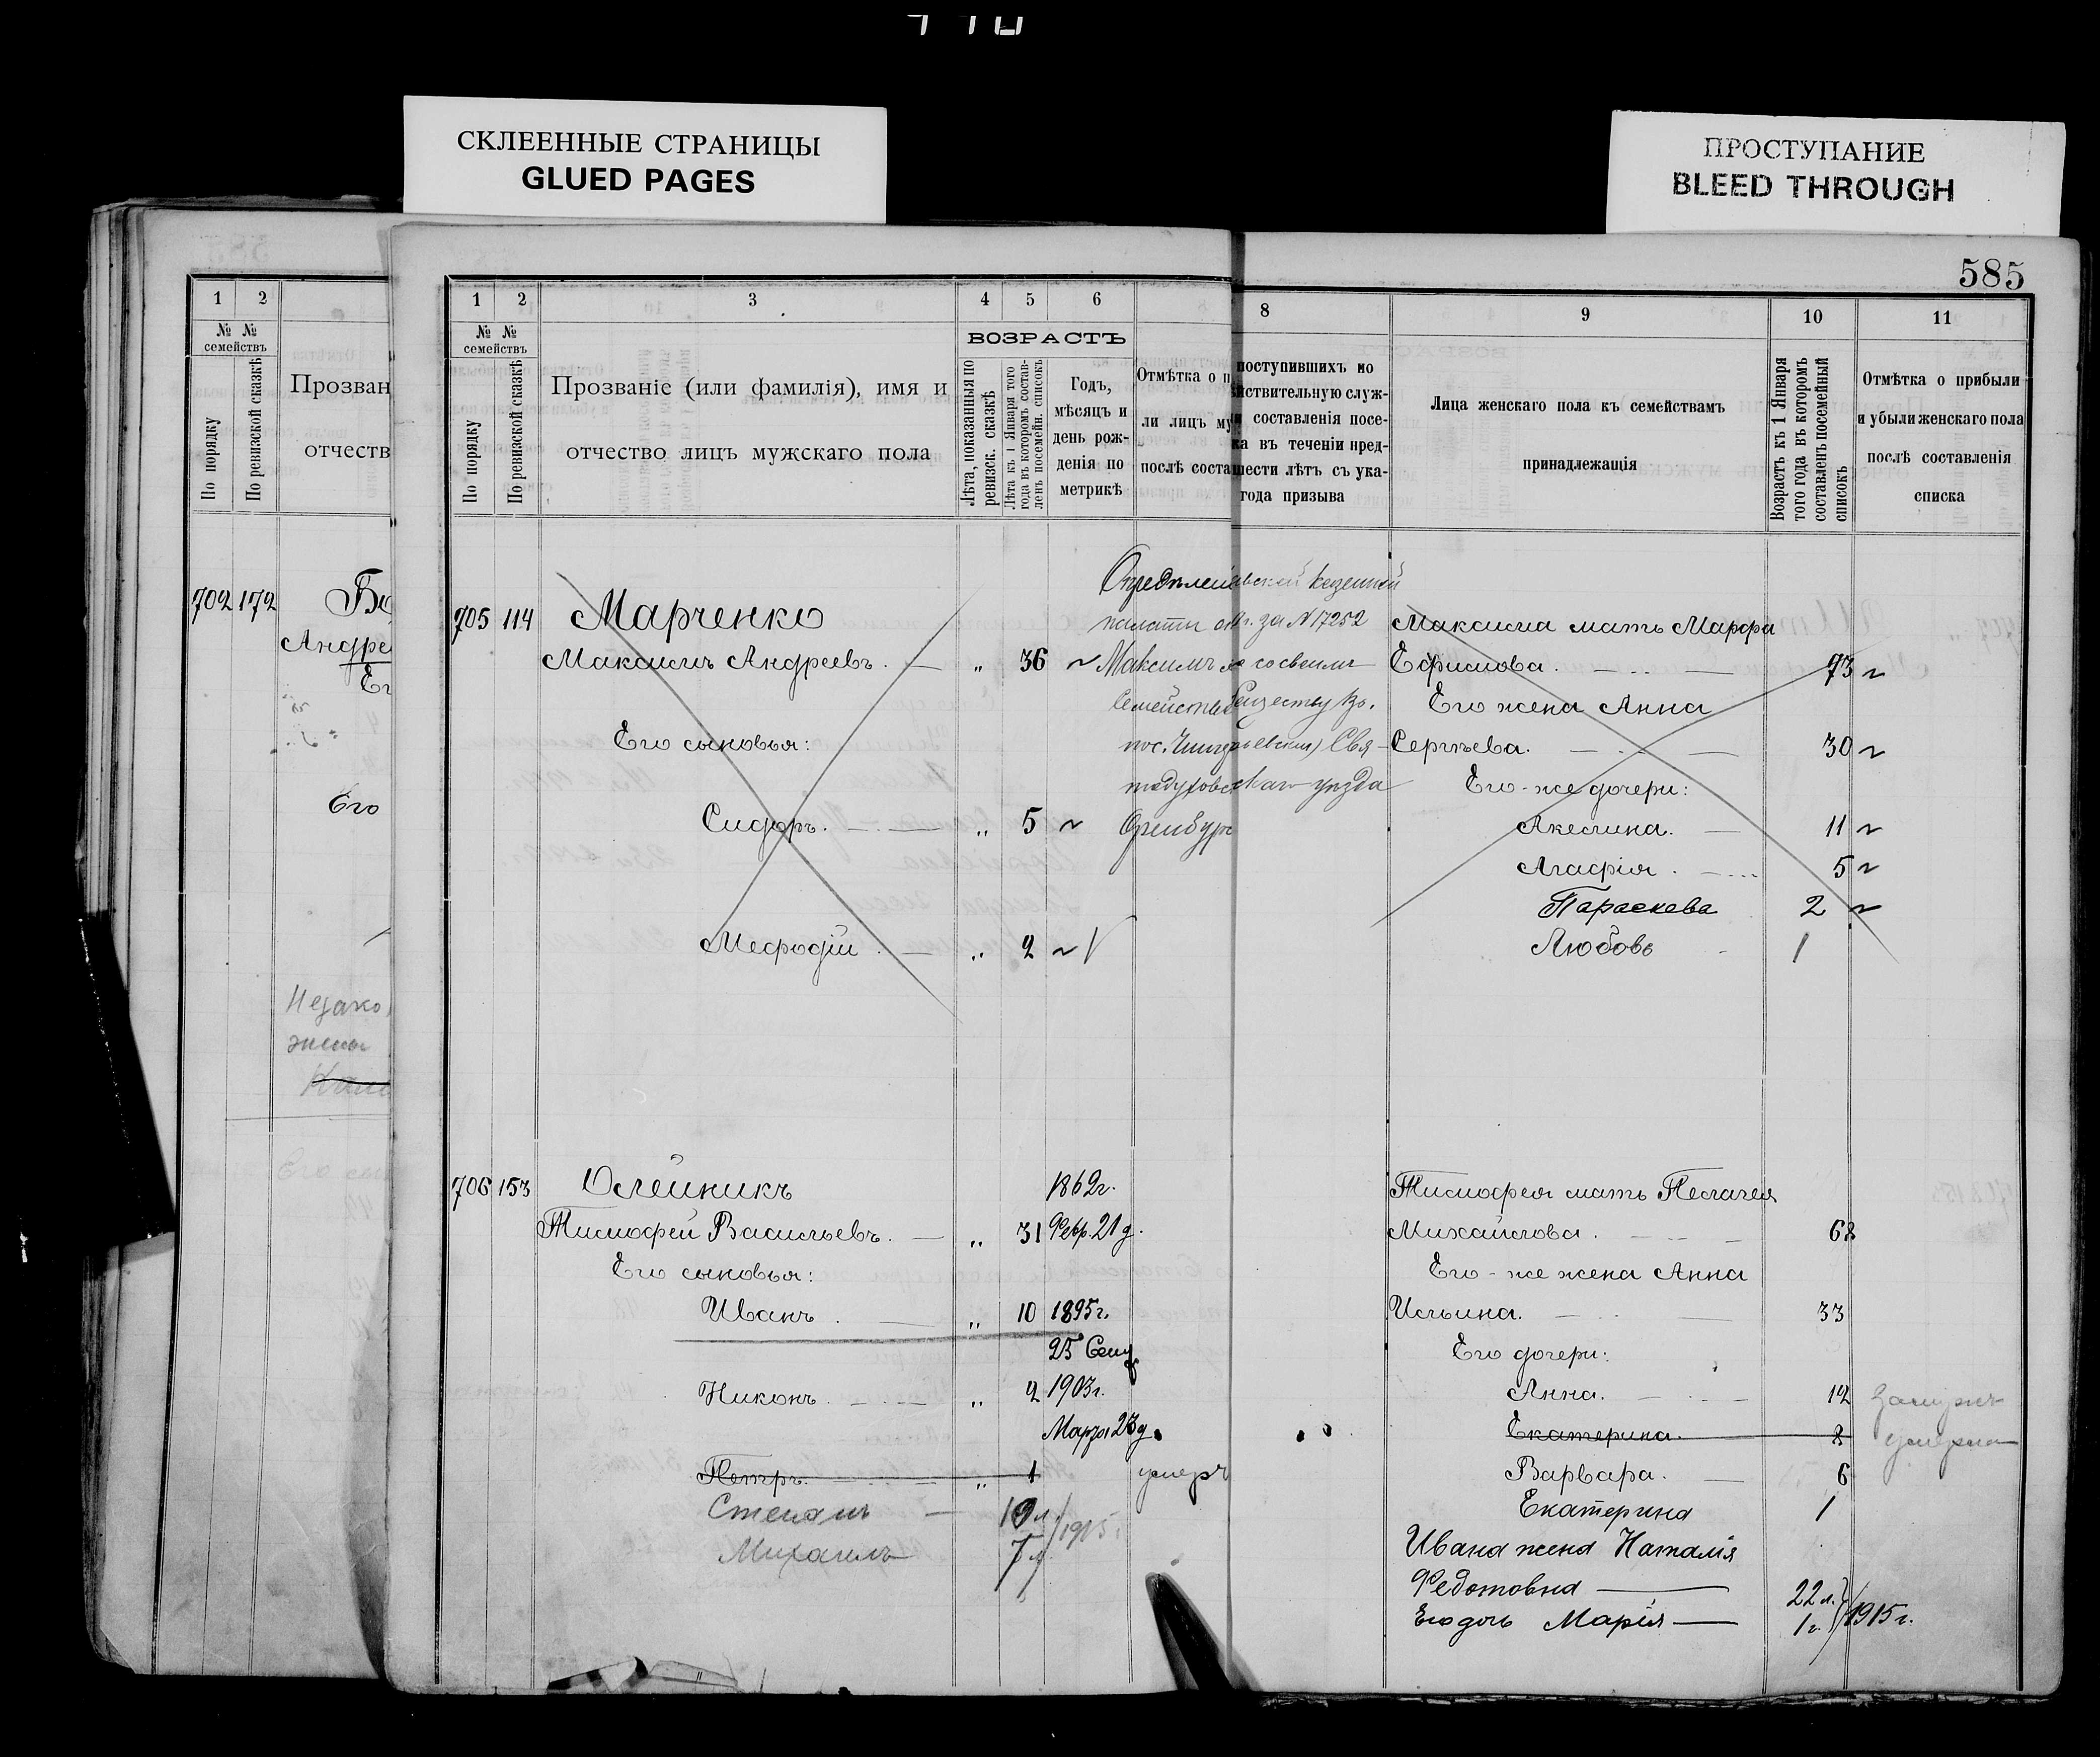 СКЛЕЕННЫЕ СТРАНИЦЫ
GLUED PAGES
ПРОСТУПАНИЕ
BLEED THROUGH
585
1 2
№ № семействъ
По порядку
По ревизской сказкѣ
Прозван
отчеств
702 172
Андре
Его
Незако
жены
1 2 3 4 5 6
№ №
семействъ
По порядку
По ревизской сказкѣ
Прозваніе (или фамилія), имя и
отчество лицъ мужскаго пола
ВОЗРАСТЪ
Лѣта, показанныя по
ревизск. сказкѣ
Лѣта къ 1 Января того
года въ котором состав-
ленъ посемейн. списокъ
Годъ,
мѣсяцъ и
день рож-
денія по
метрикѣ
Отмѣтка о п
ли лицъ му
послѣ соста
8 9 10 11
поступившихъ по
йствительную служ-
и составленія посе-
ка въ теченіи пред-
шести лѣтъ съ ука-
года призыва
Лица женскаго пола къ семействамъ
принадлежащія
Возрастъ къ 1 Января
того года въ которомъ
составленъ посемейный
списокъ
Отмѣтка о прибыли
и убыли женскаго пола
послѣ составленія
списка
705 114 Марченко
Максимъ Андреевъ. — „ 36
Его сыновья:
Сидоръ. — „ 5
Мефодій. — „ 2
казенной
палаты за № 17252
Максимъ со своимъ
уѣзда
Оренбург
Максима мать Марфа
Ефимова. — 73
Его жена Анна
Сергѣева. — 30
Его-же дочери:
Акелина. — 11
Агафія. — 5
Параскева 2
Любовь 1
706 153 Олейникъ 1862г.
Тимофей Васильевъ. — „ 31 Февр. 21 д.
Его сыновья:
Иванъ. — „ 10 1895г.
25 Сент
Никонъ. — „ 2 1903г.
Марта 23 д.
Петръ. „ 1 умеръ
Степанъ — 10 л.
Михаилъ 7 л. 1915 г.
Тимофея мать Пелагея
Михайлова. — 68
Его-же жена Анна
Ильина. — 33
Его дочери:
Анна. — 12 Замужъ
Екатерина. 8 умерла
Варвара. — 6
Екатерина 1
Ивана жена Наталія
Федотовна — 22 л.
Его дочь Марія — 1 г. 1915 г.